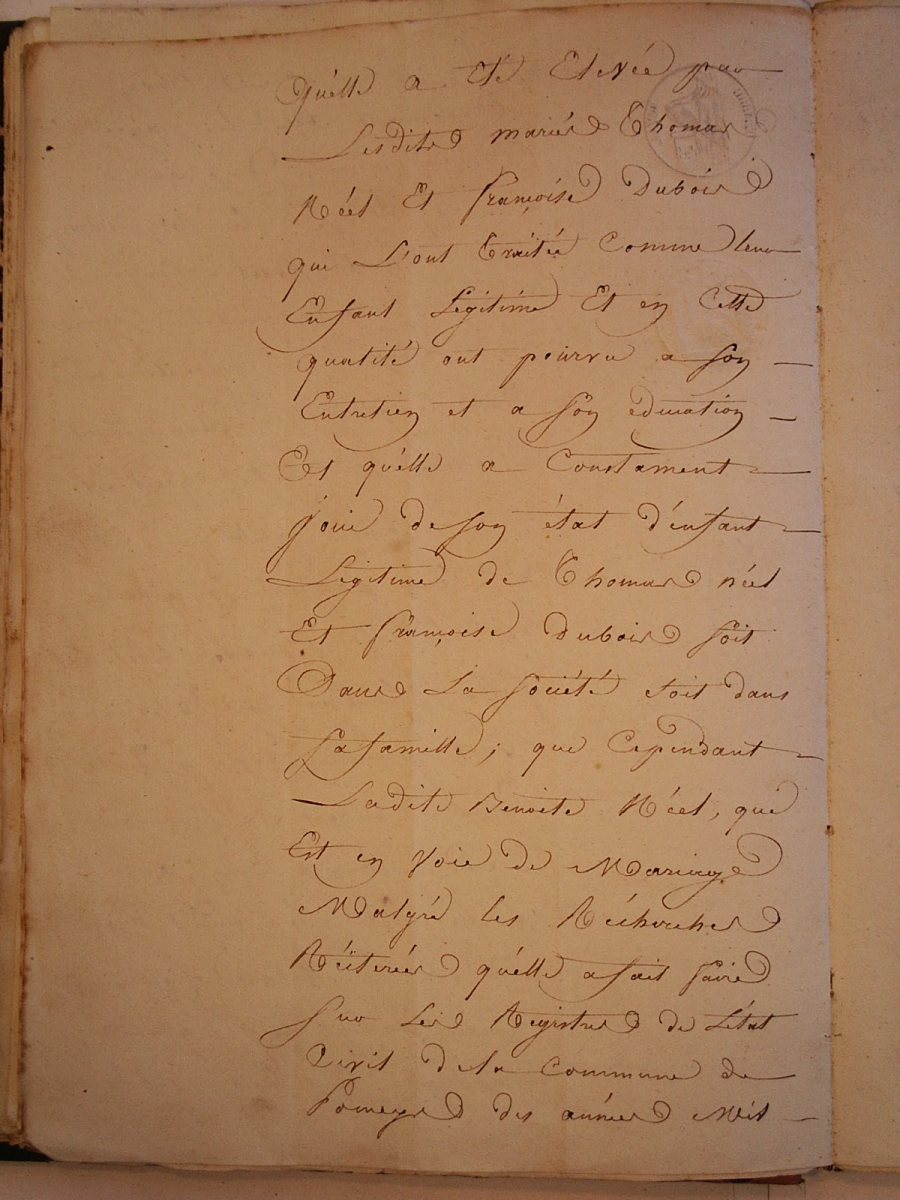 qu'elle a été Elevée par
Lesdits mariés Thomas
Réel Et françoise Dubois
qui L'ont Traitée Comme leur
Enfant Légitime Et en Cette
qualité ont pourvu a son
Entretien et a son éducation
Et qu'elle a Constament
joui de son état d'enfant
Légitime de Thomas réel
Et françoise dubois soit
Dans La société soit dans
sa famille; que Cependant
Ladite Benoite Réel, qui
Est en Voie de Mariage
Malgré les Récherches
Réïterées qu'elle a fait faire
sur Les Registres de L'état
Civil de la Commune de
Pomeys des années Mil